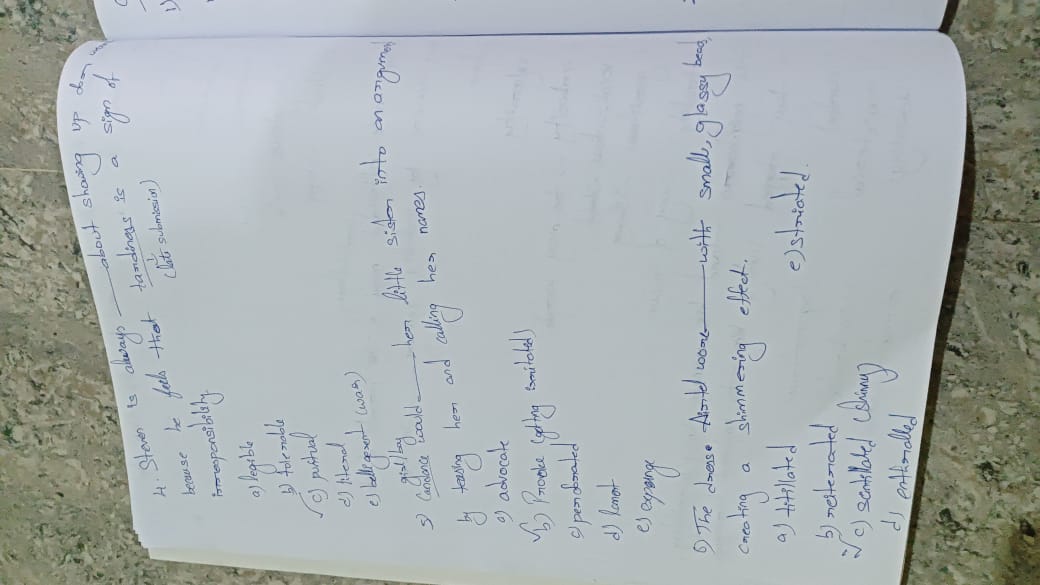 4. Steven is always ——— about showing up
because he feels that tardiness is a sign of
(late submission)
irresponsibility.
a) legible
b) tolerable
✓c) puntual
d) literal
e) belligerent (war)
girl/boy
5) Candance would ——— her little sister into an argument
by teasing her and calling her names.
a) advocate
✓b) Provoke (getting irritated)
c) perdorated
d) lament
e) expunge
6) The dresse would ——— with small, glassy beads,
creating a shimmering effect.
a) titillated
b) reterated
✓c) scntillated (shinny)
d) enthralled
e) striated.